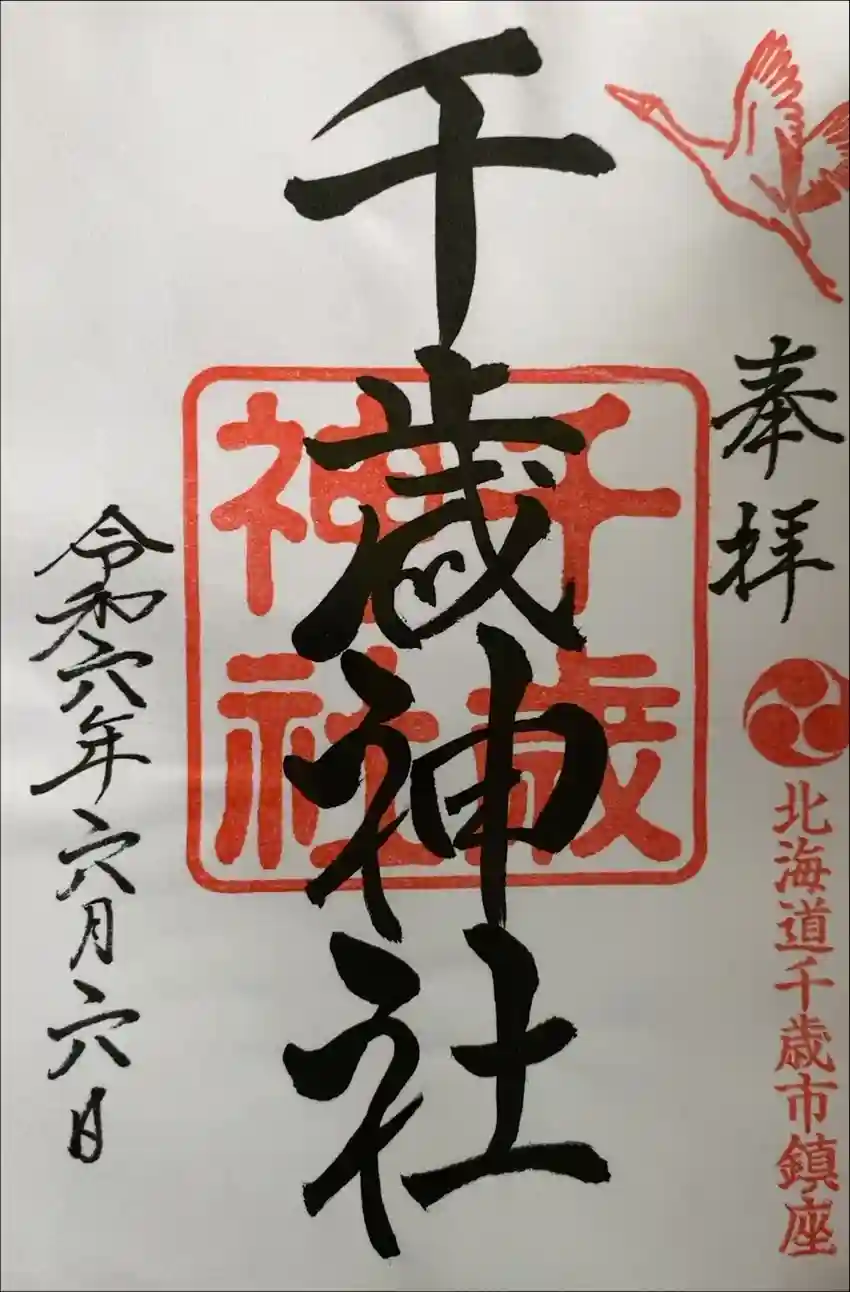 奉拝
北海道千歳市鎮座
千歳神社
千歳
神社
令和六年六月六日